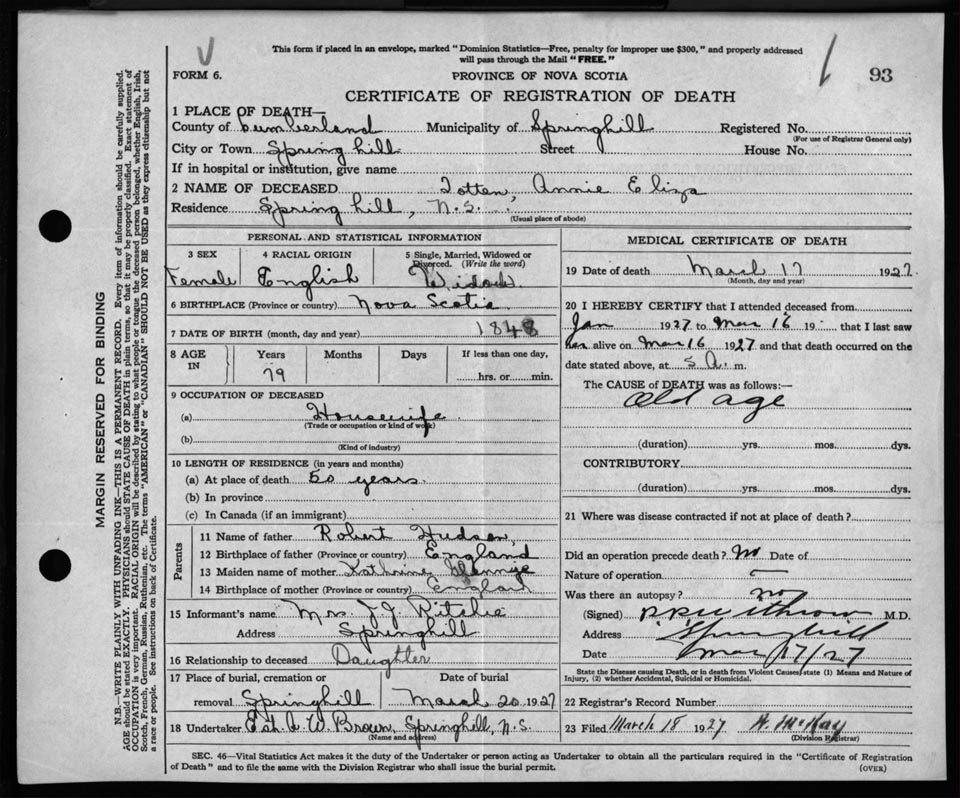 This form if placed in an envelope, marked "Dominion Statistics—Free, penalty for improper use $300," and properly addressed
will pass through the Mail "FREE."
FORM 6.
PROVINCE OF NOVA SCOTIA
93
CERTIFICATE OF REGISTRATION OF DEATH
1 PLACE OF DEATH—
County of Cumberland Municipality of Springhill Registered No.
(For use of Registrar General only)
City or Town Spring hill Street House No.
If in hospital or institution, give name
2 NAME OF DECEASED Totten, Annie Eliza
Residence Spring hill, N.S.
(Usual place of abode)
PERSONAL AND STATISTICAL INFORMATION
3 SEX 4 RACIAL ORIGIN 5 Single, Married, Widowed or
Divorced. (Write the word)
Female English Widow.
6 BIRTHPLACE (Province or country) Nova Scotia
7 DATE OF BIRTH (month, day and year) 1848
8 AGE IN Years Months Days If less than one day,
79 hrs. or min.
9 OCCUPATION OF DECEASED
(a) Housewife.
(Trade or occupation or kind of work)
(b)
(Kind of industry)
10 LENGTH OF RESIDENCE (in years and months)
(a) At place of death 50 years.
(b) In province
(c) In Canada (if an immigrant)
Parents
11 Name of father Robert Hudson,
12 Birthplace of father (Province or country) England
13 Maiden name of mother Kathrine
14 Birthplace of mother (Province or country) England
15 Informant's name Mrs. J.J. Ritchie
Address Springhill
16 Relationship to deceased Daughter
17 Place of burial, cremation or Date of burial
removal Springhill March 20, 1927
18 Undertaker Est. A. W. Brown, Springhill, N.S.
(Name and address)
MEDICAL CERTIFICATE OF DEATH
19 Date of death March 17 1927.
(Month, day and year)
20 I HEREBY CERTIFY that I attended deceased from
Jan 1927 to Mar 16 19 that I last saw
her alive on Mar 16 1927 and that death occurred on the
date stated above, at 5 A. m.
The CAUSE of DEATH was as follows:—
Old age
(duration) yrs. mos. dys.
CONTRIBUTORY
(duration) yrs. mos. dys.
21 Where was disease contracted if not at place of death?
Did an operation precede death? No Date of
Nature of operation —
Was there an autopsy? no
(Signed) M.D.
Address Springhill
Date Mar 17/27
State the Disease causing Death, or in death from Violent Causes, state (1) Means and Nature of
Injury, (2) whether Accidental, Suicidal or Homicidal.
22 Registrar's Record Number
23 Filed March 18 1927 H. McKay
(Division Registrar)
SEC. 46—Vital Statistics Act makes it the duty of the Undertaker or person acting as Undertaker to obtain all the particulars required in the "Certificate of Registration
of Death" and to file the same with the Division Registrar who shall issue the burial permit.
(OVER)
MARGIN RESERVED FOR BINDING
N.B.—WRITE PLAINLY WITH UNFADING INK—THIS IS A PERMANENT RECORD. Every item of information should be carefully supplied.
AGE should be stated EXACTLY. PHYSICIANS should STATE CAUSE OF DEATH in plain terms, so that it may be properly classified. Exact statement of
OCCUPATION is very important. RACIAL ORIGIN will be described by stating to what people or tongue the deceased person belonged, whether English, Irish,
Scotch, French, German, Russian, Ruthenian, etc. The terms "AMERICAN" or "CANADIAN" SHOULD NOT BE USED as they express citizenship but not
a race or people. See instructions on back of Certificate.